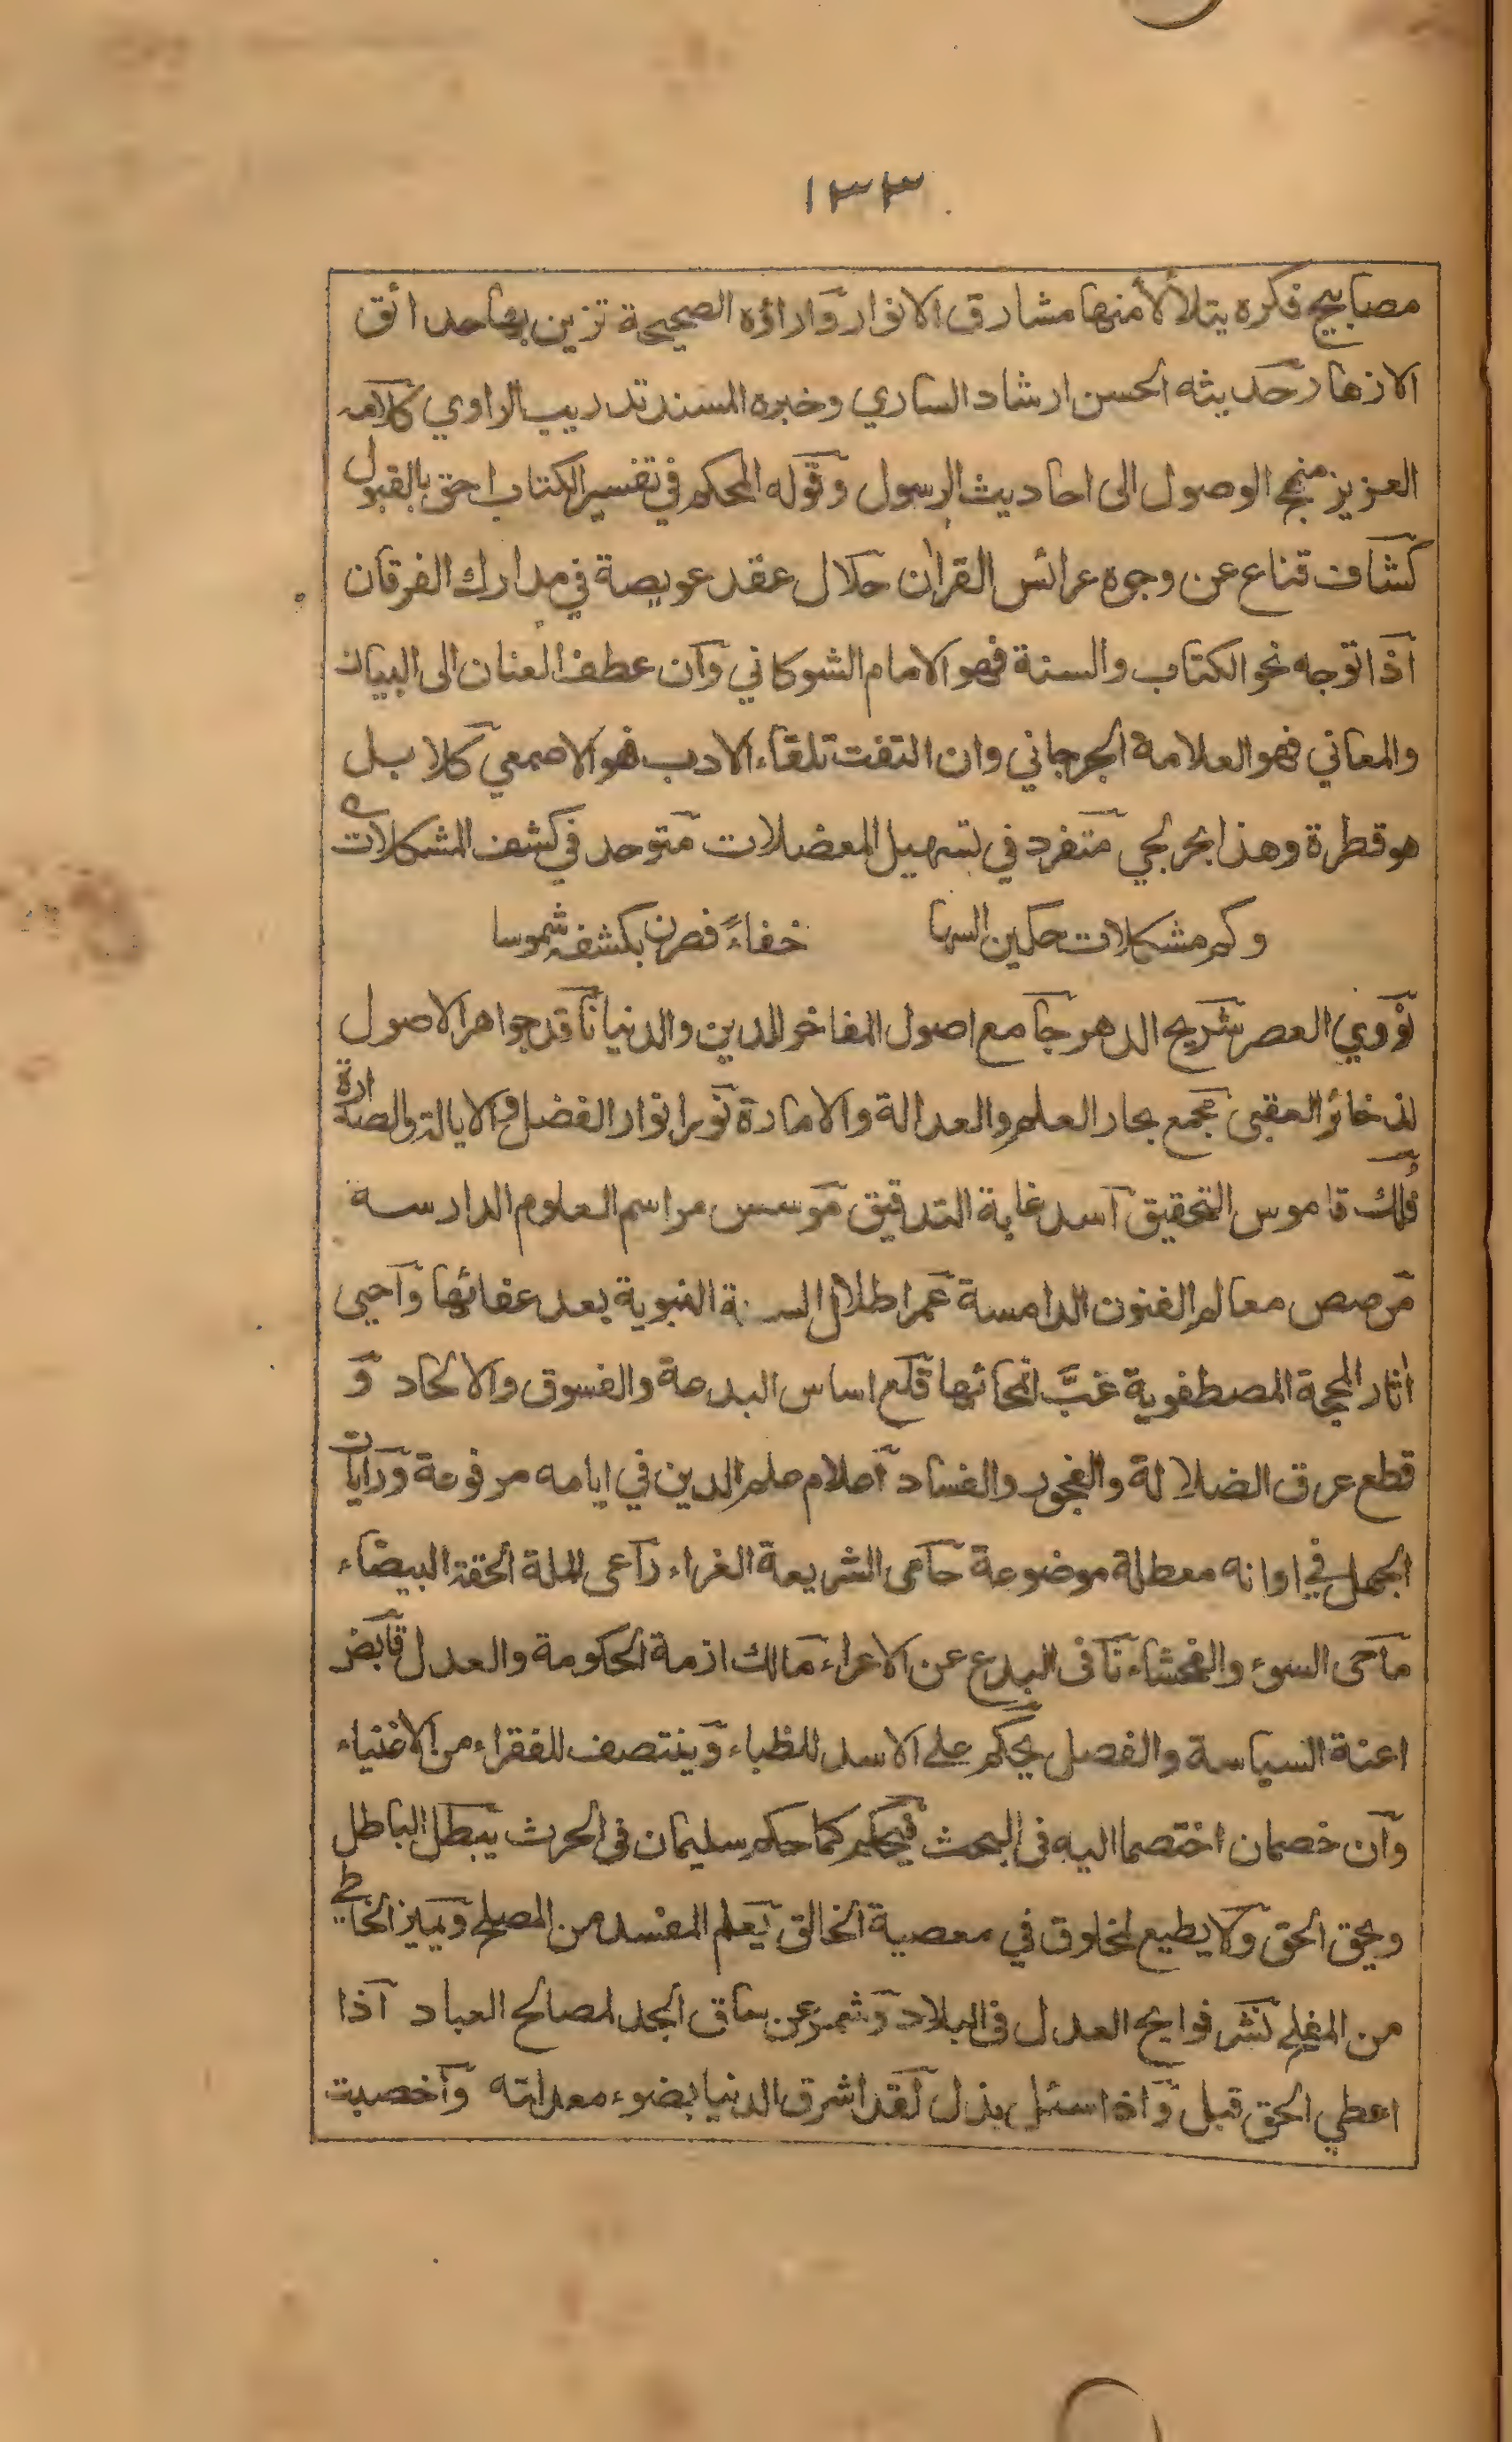 ١٣٣
مصابيح فكره يتلألأ منها مشارق الانوار واراؤه الصحيحة تزين بها حدائق
الازهار حديثه الحسن ارشاد الساري وخبره المسند تدريب الراوي كلامه
العزيز منهج الوصول الى احاديث الرسول وقوله المحكم في تفسير الكتاب احق بالقبول
كشاف قناع عن وجوه عرائس القران حلال عقد عويصة في مدارك الفرقان
اذا توجه نحو الكتاب والسنة فهو الامام الشوكاني وان عطف العنان الى البيان
والمعاني فهو العلامة الجرجاني وان التفت تلقاء الادب فهو الاصمعي كلا بل
هو قطرة وهذا بحر لجي متفرد في تسهيل المعضلات متوحد في كشف المشكلات
وكم مشكلات حكين السها خفاءً فصرن بكشفه شموسا
نووي العصر شريح الدهر جامع اصول المفاخر للدين والدنيا ناقد جواهر الاصول
لذخائر العقبى مجمع بحار العلم والعدالة والامارة نور انوار الفضل والايالة والصدارة
فلك قاموس التحقيق اسد غابة التدقيق موسس مراسم العلوم الدارسة
مرصص معالم الفنون الدامسة عمر اطلال السنة النبوية بعد عفائها واحيى
اثار المحجة المصطفوية غبَّ انمحائها قلع اساس البدعة والفسوق والالحاد و
قطع عرق الضلالة والفجور والفساد اعلام علم الدين في ايامه مرفوعة ورايات
الجهل في اوانه معطلة موضوعة حامى الشريعة الغراء راعى الملة الحقة البيضاء
ماحى السوء والفحشاء نافى البدع عن الاعراء مالك ازمة الحكومة والعدل قابض
اعنة السياسة والفصل يحكم على الاسد للظباء وينتصف للفقراء من الاغنياء
وان خصمان اختصما اليه فى البحث فيحكم كما حكم سليمان فى الحرث يبطل الباطل
ويحق الحق ولا يطيع لمخلوق في معصية الخالق يعلم المفسد من المصلح ويميز الخاطي
من المفلح نشر فوايح العدل فى البلاد وشمر عن ساق الجد لمصالح العباد اذا
اعطي الحق قبل واذا سئل بذل لقد اشرق الدنيا بضوء معدلته واخصبت